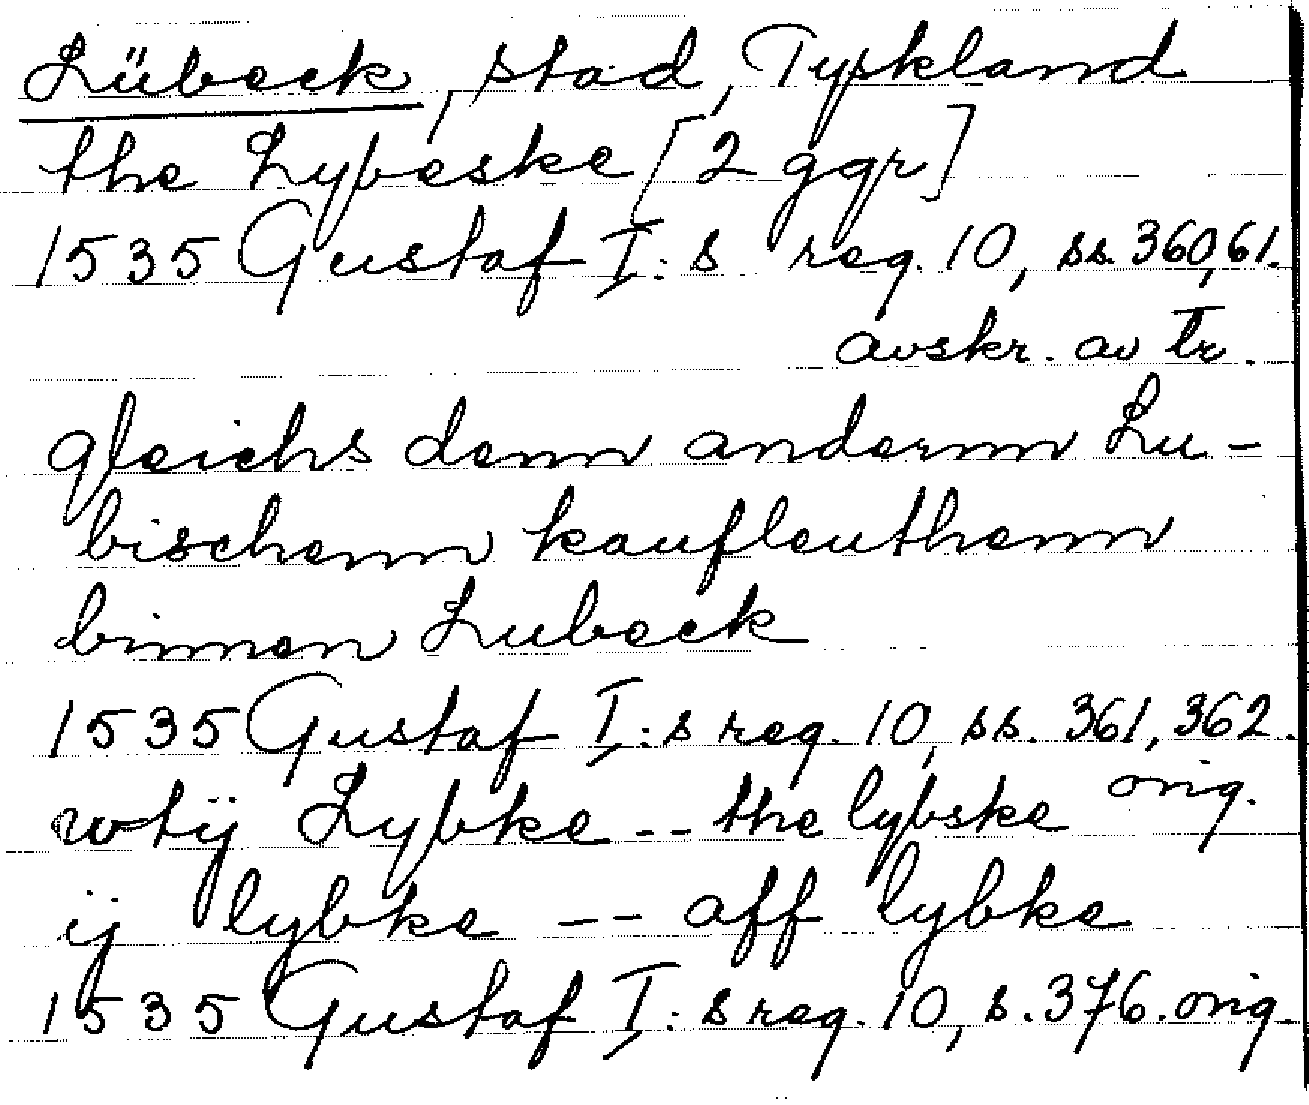 Lübeck, stad, Tyskland
the Lybeske [2 ggr]
1535 Gustaf I:s reg. 10, ss. 360,61.
avskr. av tr.
gleichs denn andernn Lu-
bischenn kaufleuthenn
binnen Lubeck
1535 Gustaf I:s reg. 10, ss. 361, 362.
orig.
wtij Lybke -- the lybske
ij lybke -- aff lybke
1535 Gustaf I:s reg. 10, s. 376. orig.